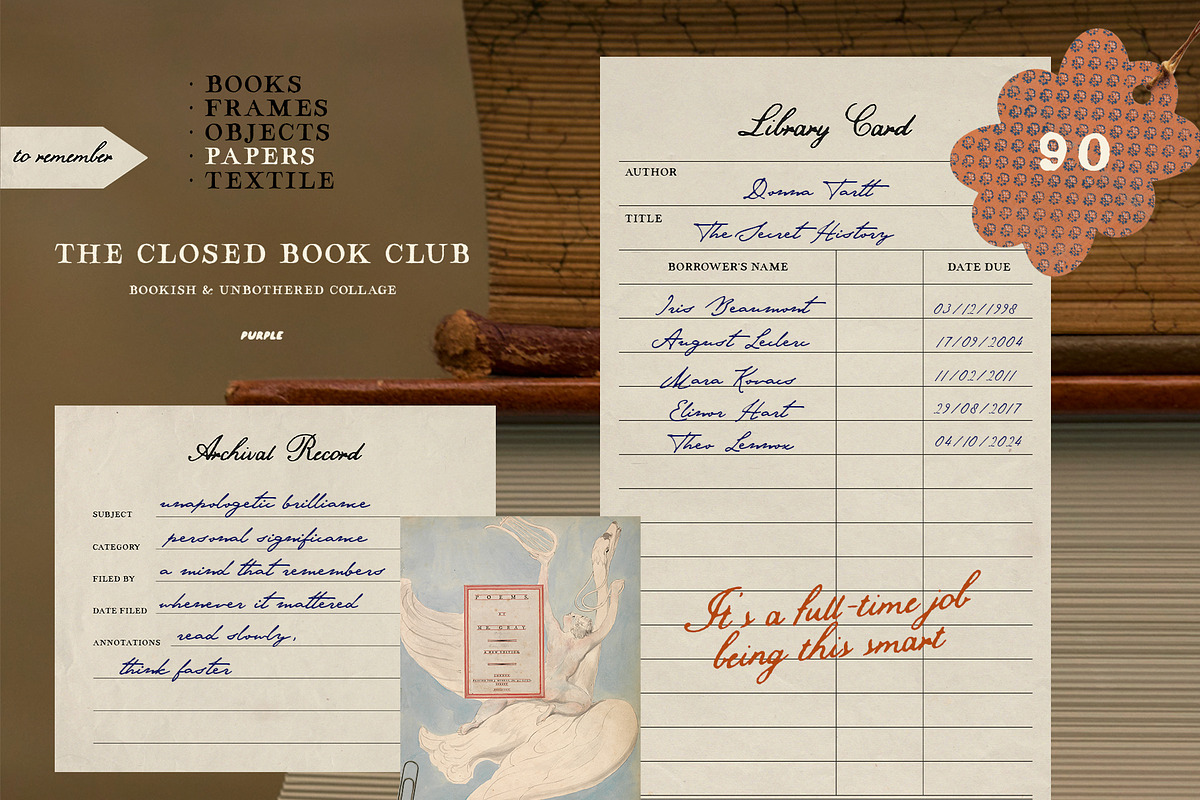 · BOOKS
· FRAMES
· OBJECTS
· PAPERS
· TEXTILE
to remember
THE CLOSED BOOK CLUB
BOOKISH & UNBOTHERED COLLAGE
PURPLE
Archival Record
SUBJECT unapologetic brilliance
CATEGORY personal significance
FILED BY a mind that remembers
DATE FILED whenever it mattered
ANNOTATIONS read slowly,
think faster
POEMS
BY
MR. GRAY
A NEW EDITION
Library Card
90
AUTHOR Donna Tartt
TITLE The Secret History
BORROWER'S NAME DATE DUE
Iris Beaumont 03/12/1998
August Leclerc 17/09/2004
Mara Kovacs 11/02/2011
Elinor Hart 29/08/2017
Theo Lennox 04/10/2024
It's a full-time job
being this smart